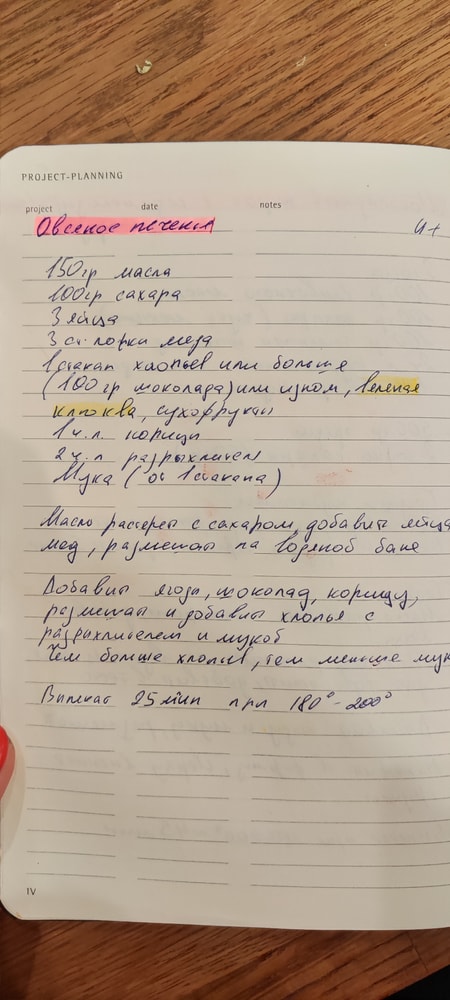 PROJECT-PLANNING
project date notes
Овсяное печенье
150гр масла
100гр сахара
3 яйца
3 ст. ложки меда
1 стакан хлопьев или больше
(100гр шоколада) или изюм, вяленая
клюква, сухофрукты
1 ч.л. корицы
2 ч.л разрыхлителя
Мука (от 1 стакана)
Масло растереть с сахаром, добавить яйца
мед, размешать на водяной бане
Добавить ягоды, шоколад, корицу,
размешать и добавить хлопья с
разрыхлителем и мукой
Чем больше хлопьев, тем меньше мук
Выпекать 25 мин при 180°-200°
IV